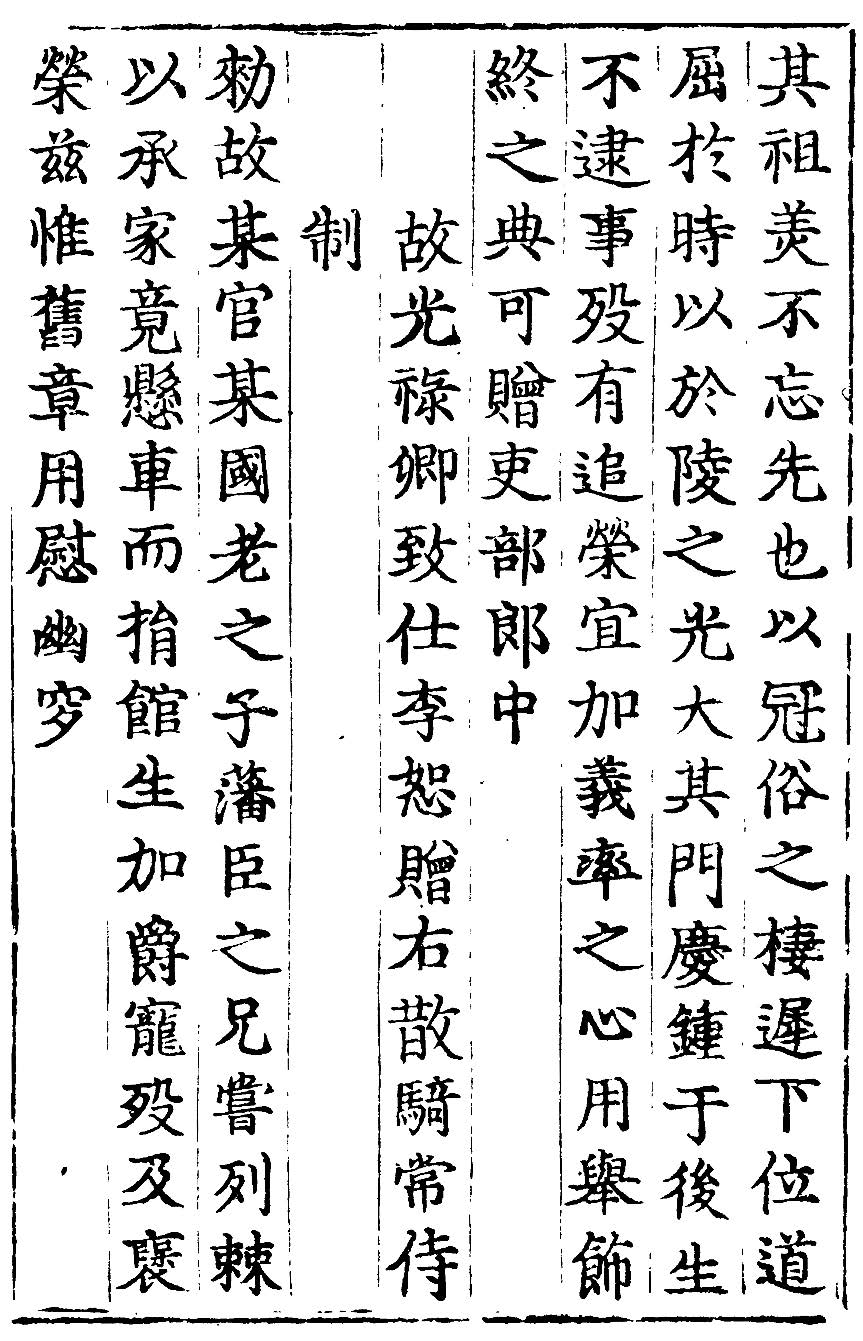 其祖羙不忘先也以冠俗之棲遲下位道
屈於時以於陵之光大其門慶鍾于後生
不逮事歿有追榮宜加義率之心用舉飾
終之典可贈吏部郎中
故光祿卿致仕李恕贈右散騎常侍
制
勑故某官某國老之子藩臣之兄嘗列棘
以承家竟懸車而捐館生加爵寵歿及褒
榮兹惟舊章用慰幽穸